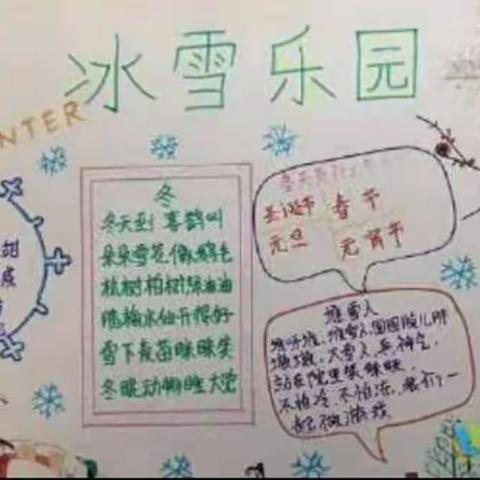 冰雪乐园
NTER
冬
冬天到 喜鹊叫
朵朵雪花像鹅毛
松树柏树绿油油
腊梅水仙开得好
雪下麦苗眯眯笑
冬眠动物睡大觉
冬天
圣诞节 春节
元旦 元宵节
堆雪人
堆呀堆,堆雪人,圆圆脸儿胖
墩墩,大雪人,真神气,
站在院里笑眯眯,
不怕冷,不怕冻,我们一
起做游戏
甜